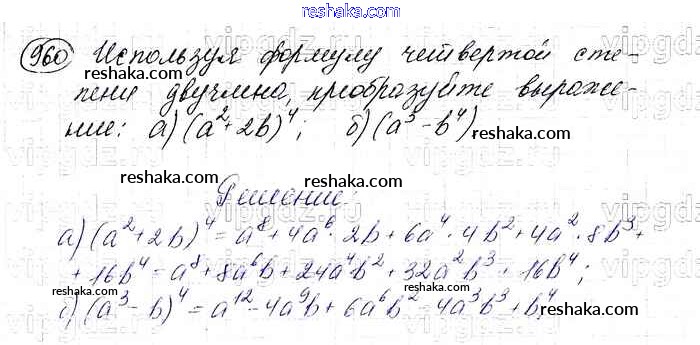 reshaka.ru
960 Используя формулу четвертой сте-
пени двучлена, преобразуйте выраже-
ние: а) (a² + 2b)⁴; б) (a³ - b⁴)
reshaka.ru
Решение.
а) (a² + 2b)⁴ = a⁸ + 4a⁶ · 2b + 6a⁴ · 4b² + 4a² · 8b³ +
+ 16b⁴ = a⁸ + 8a⁶b + 24a⁴b² + 32a²b³ + 16b⁴;
б) (a³ - b)⁴ = a¹² - 4a⁹b + 6a⁶b² - 4a³b³ + b⁴
reshaka.ru